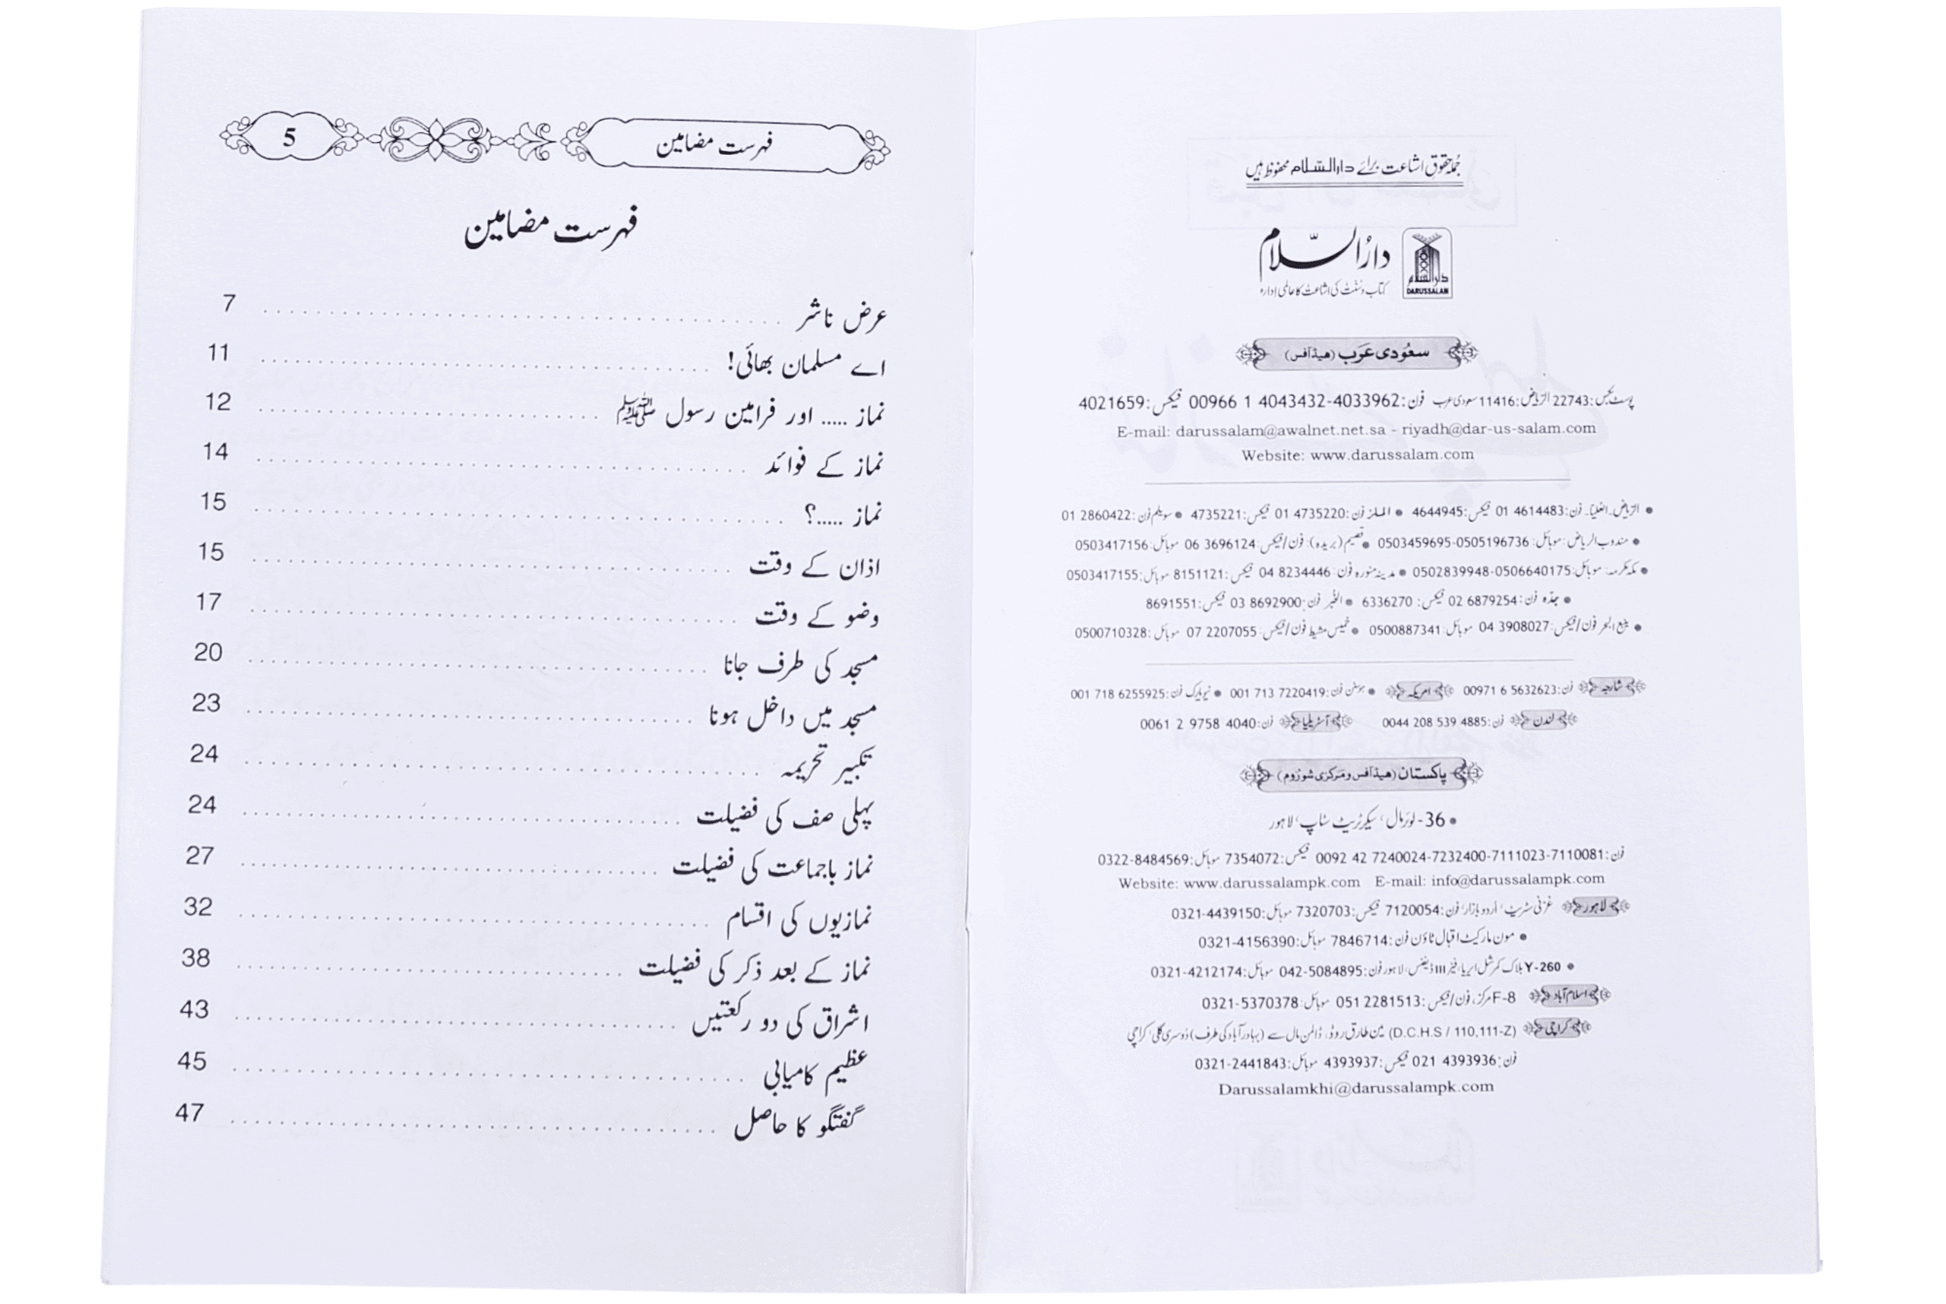 جُملہ حقوقِ اشاعت برائے دارالسّلام محفوظ ہیں
دارُالسّلام
کتاب و سنّت کی اشاعت کا عالمی ادارہ
دارالسلام
DARUSSALAM
سعُودی عرَب (ھیڈآفس)
پوسٹ بکس: 22743 الریاض: 11416 سعودی عرب فون: 00966 1 4043432-4033962 فیکس: 4021659
E-mail: darussalam@awalnet.net.sa - riyadh@dar-us-salam.com
Website: www.darussalam.com
● الریاض۔العُلیا۔ فون: 01 4614483 فیکس: 4644945 ● الملز فون: 01 4735220 فیکس: 4735221 ● سویلم فون: 01 2860422
● مندوب الریاض: موبائل: 0503459695-0505196736 ● قصیم (بریدہ): فون/فیکس: 06 3696124 موبائل: 0503417156
● مکہ مکرمہ: موبائل: 0502839948-0506640175 ● مدینہ منورہ فون: 04 8234446 فیکس: 8151121 موبائل: 0503417155
● جدّہ فون: 02 6879254 فیکس: 6336270 ● الخُبر فون: 03 8692900 فیکس: 8691551
● ینبع البحر فون/فیکس: 04 3908027 موبائل: 0500887341 ● خمیس مشیط فون/فیکس: 07 2207055 موبائل: 0500710328
شارجہ فون: 00971 6 5632623 امریکہ ● ہوسٹن فون: 001 713 7220419 ● نیویارک فون: 001 718 6255925
لندن فون: 0044 208 539 4885 آسٹریلیا فون: 0061 2 9758 4040
پاکستان (ھیڈآفس ومَرکزی شورُوم)
● 36- لوئرمال، سیکرٹریٹ سٹاپ، لاہور
فون: 0092 42 7240024-7232400-7111023-7110081 فیکس: 7354072 موبائل: 0322-8484569
Website: www.darussalampk.com E-mail: info@darussalampk.com
لاہور غزنی سٹریٹ، اُردو بازار، فون: 7120054 فیکس: 7320703 موبائل: 0321-4439150
● مون مارکیٹ اقبال ٹاؤن فون: 7846714 موبائل: 0321-4156390
● Y-260 بلاک کمرشل ایریا، فیز III ڈیفنس، لاہور فون: 042-5084895 موبائل: 0321-4212174
اسلام آباد F-8 مرکز، فون/فیکس: 051 2281513 موبائل: 0321-5370378
کراچی (D.C.H.S / 110,111-Z) مین طارق روڈ، ڈالمن مال سے (بہادرآباد کی طرف) دُوسری گلی، کراچی
فون: 021 4393936 فیکس: 4393937 موبائل: 0321-2441843
Darussalamkhi@darussalampk.com
فہرست مضامین 5
فہرست مضامین
عرض ناشر 7
اے مسلمان بھائی! 11
نماز ..... اور فرامین رسول ﷺ 12
نماز کے فوائد 14
نماز .....؟ 15
اذان کے وقت 15
وضو کے وقت 17
مسجد کی طرف جانا 20
مسجد میں داخل ہونا 23
تکبیر تحریمہ 24
پہلی صف کی فضیلت 24
نماز باجماعت کی فضیلت 27
نمازیوں کی اقسام 32
نماز کے بعد ذکر کی فضیلت 38
اشراق کی دو رکعتیں 43
عظیم کامیابی 45
گفتگو کا حاصل 47